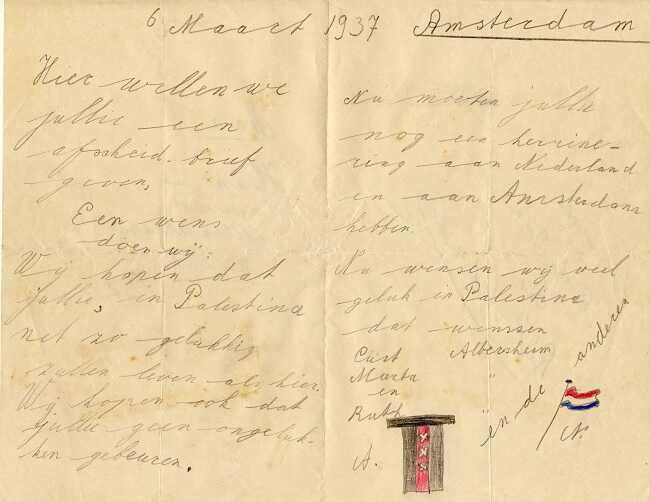 6 Maart 1937 Amsterdam
Hier willen we
jullie een
afscheid-brief
geven,
Een wens
doen wij:
Wij hopen dat
jullie, in Palestina
net zo gelukkig
zullen leven als hier.
Wij hopen ook dat
jullie geen ongeluk-
ken gebeuren.
Nu moeten jullie
nog een herrine-
ring aan Nederland
en aan Amsterdam
hebben
Nu wensen wij veel
geluk in Palestina
dat wenssen
Curt Albersheim
Marta "
en
Ruth "
en de anderen
A.
N.